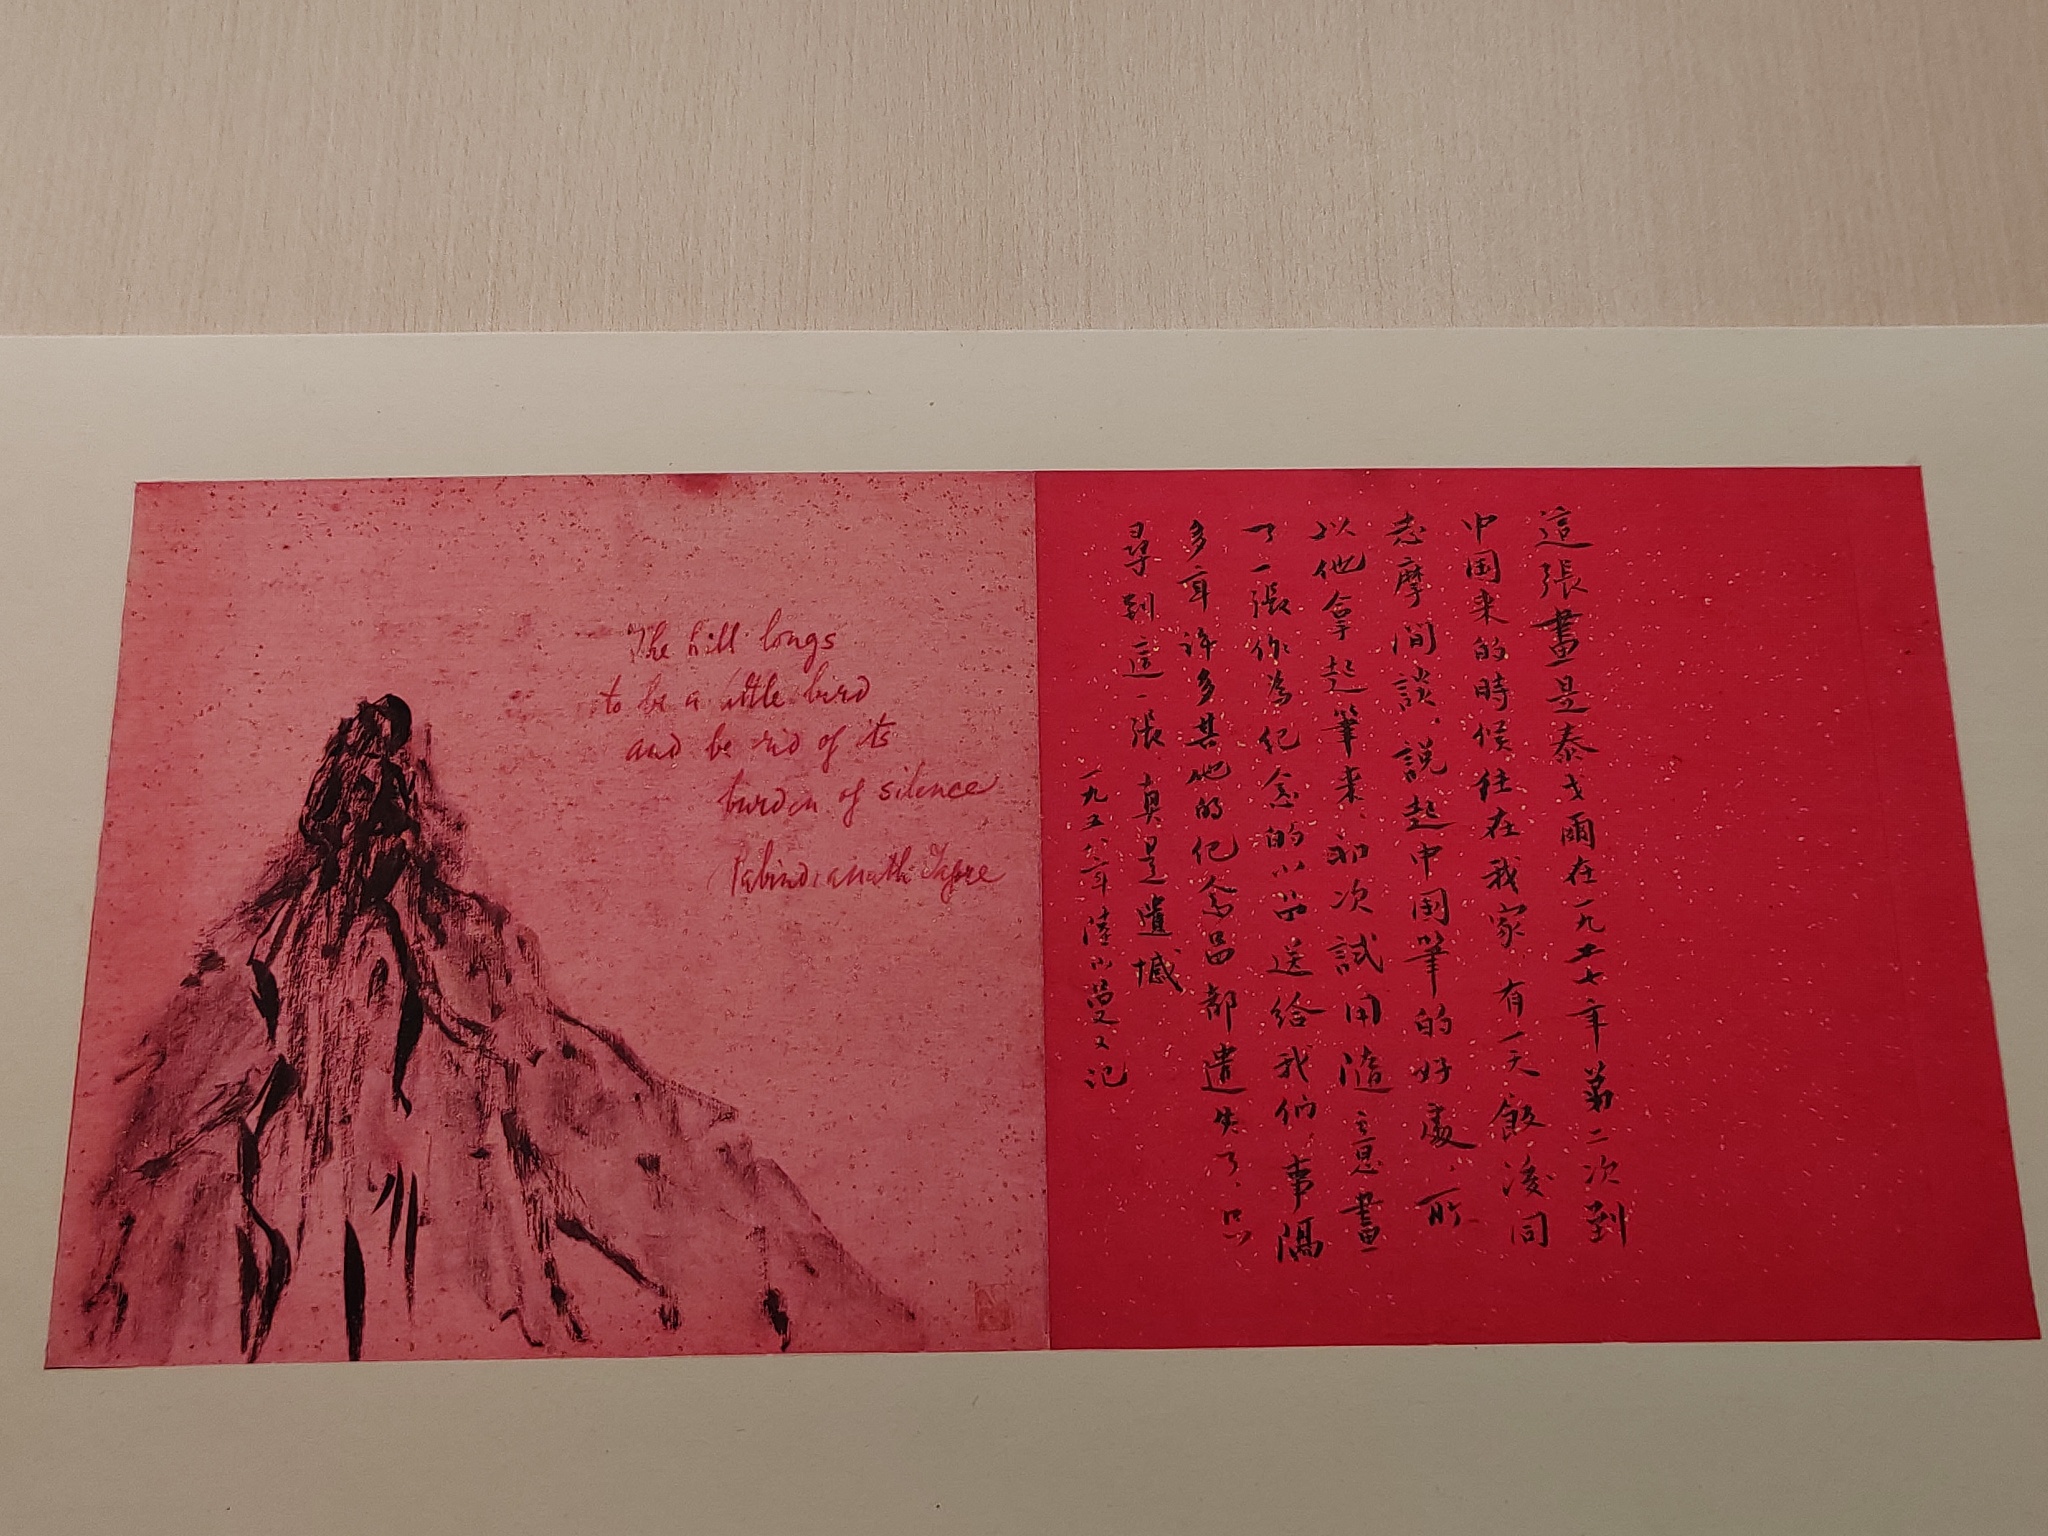 The hill longs
to be a little bird
and be rid of its
burden of silence
Rabindranath Tagore
這張畫是泰戈爾在一九二七年第二次到
中国来的時候住在我家有一天飯後同
志摩间談、説起中国筆的好處、所
以他拿起筆来、初次試用隨意畫
了一張作為纪念的小品送给我们、事隔
多年许多其他的纪念品都遺失了、只
尋到這一張真是遺憾
一九五六年陸小曼又记